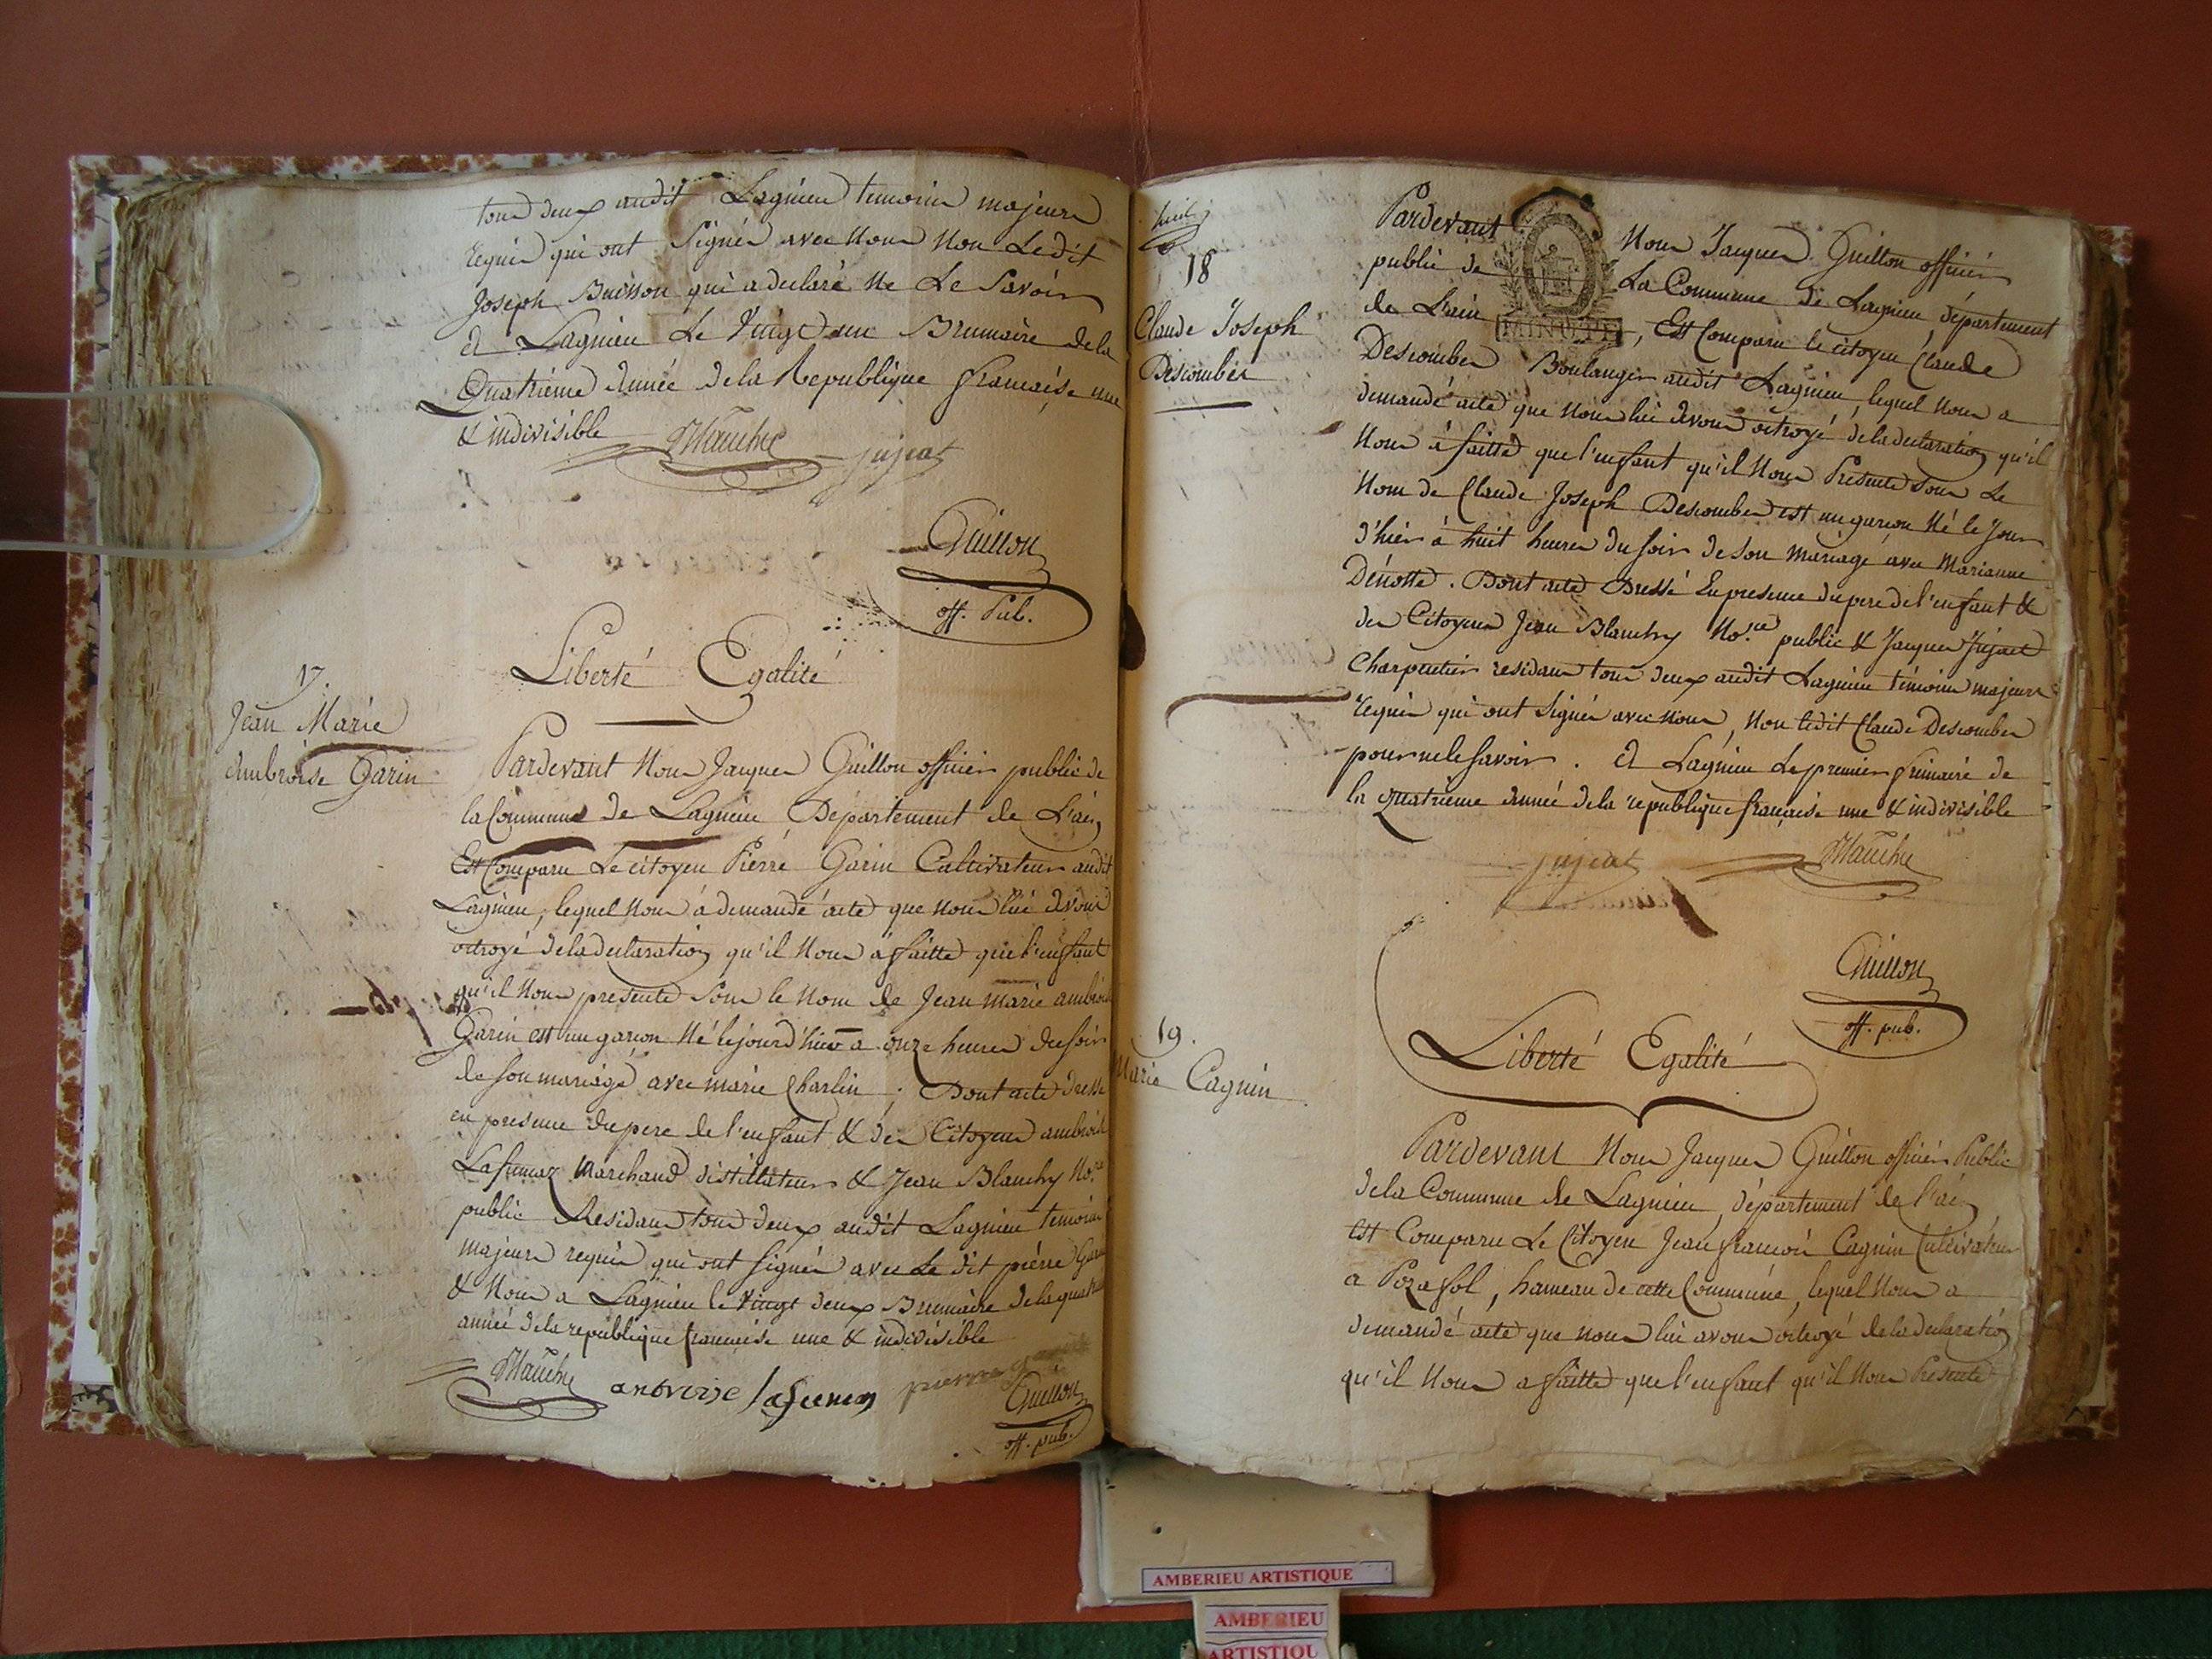 tous deux audit Lagnieu temoins majeurs
requis qui ont Signés avec Nous Non Ledit
Joseph Buisson qui a declaré Ne Le Savoir
a Lagnieu Le Vingt un Brumaire de la
Quatrieme Année de la Republique française une
& indivisible
Blanchy jujeat
Guillon
off. Pub.
Liberté Egalité
17.
Jean Marie
Ambroise Garin
Pardevant Nous Jacques Guillon officier public de
la Commune de Lagnieu Département de L'ain
Est Comparu Le citoyen Pierre Garin Cultivateur audit
Lagnieu, lequel Nous à demandé acte que nous lui avons
octroyé de la declaration qu'il Nous à faitte que l'enfant
qu'il Nous presente Sous le Nom de Jean marie ambroise
Garin est un garçon Né le jour d'hier a onze heures du soir
de son mariage avec marie Charlin, Dont acte dressé
en presence du pere de l'enfant & des Citoyens ambroise
Lafumaz Marchand distillateur & Jean Blanchy No.re
public Residans tous deux audit Lagnieu temoins
majeurs requis qui ont signés avec Le dit pierre Garin
& Nous a Lagnieu le vingt deux Brumaire de la quatrieme
année de la republique française une & indivisible
Blanchy pierre garin
Guillon
off. pub.
18
Claude Joseph
Descombes
Pardevant Nous Jacques Guillon officier
public de La Commune de Lagnieu département
de L'ain, Est Comparu le citoyen Claude
Descombes Boulanger audit Lagnieu, lequel Nous a
demandé acte que Nous lui avons octroyé de la declaration qu'il
Nous à faitte que l'enfant qu'il Nous Presente sous Le
Nom de Claude Joseph Descombes est un garçon Né le Jour
d'hier à huit heures du soir de son mariage avec Marianne
. Dont acte Dressé En presence du pere de l'enfant &
des Citoyens Jean Blanchy No.re public & Jacques Jujeat
Charpentier residans tous deux audit Lagnieu témoins majeurs
requis qui ont signés avec Nous, Non ledit Claude Descombes
pour ne le savoir. A Lagnieu Le premier frimaire de
la Quatrieme Année de la republique française une & indivisible
jujeat Blanchy
Guillon
off. pub.
Liberté Egalité
19.
Marie Cagnin
Pardevant Nous Jacques Guillon officier Public
de la Commune de Lagnieu, département de l'ain
est Comparu Le Citoyen Jean françois Cagnin Cultivateur
a Pozafol, hameau de cette Commune, lequel Nous a
demandé acte que nous lui avons octroyé de la declaration
qu'il Nous a faitte que l'enfant qu'il Nous Presente
AMBERIEU ARTISTIQUE
AMBERIEU